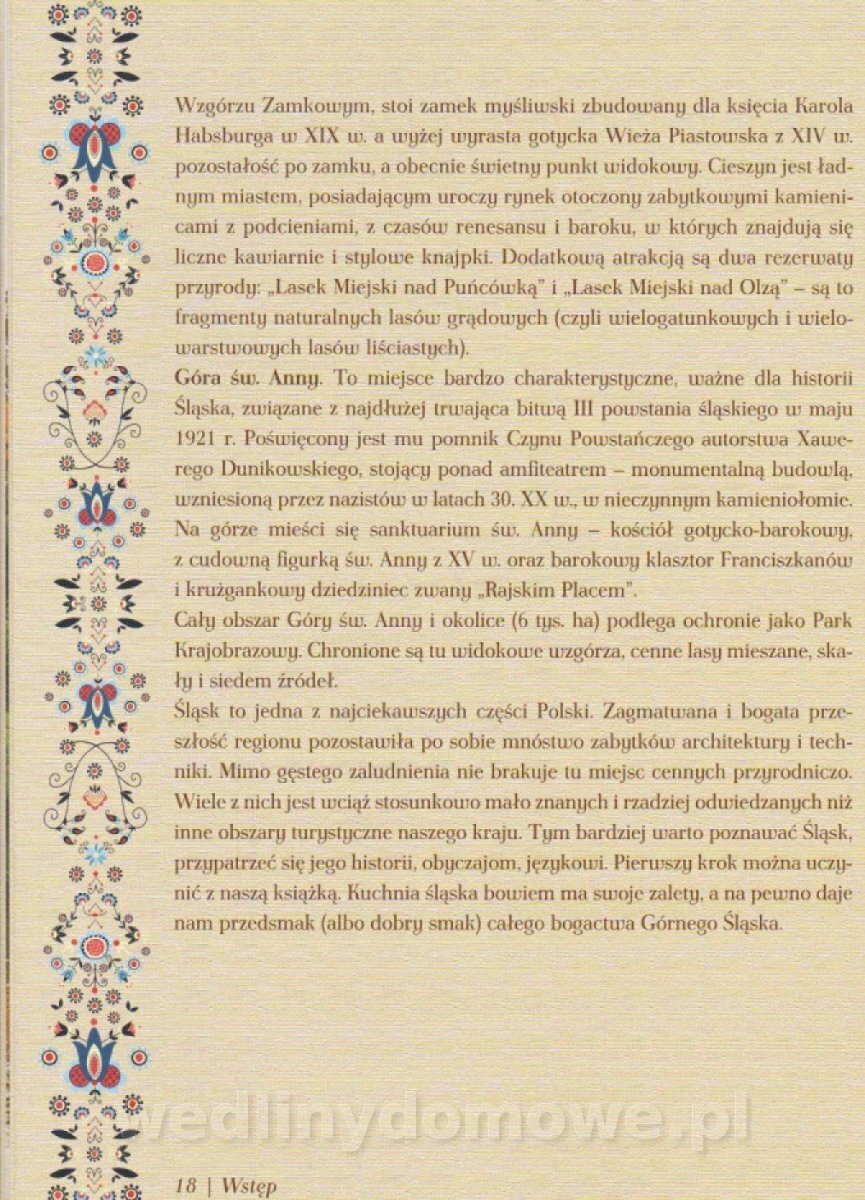 Wzgórzu Zamkowym, stoi zamek myśliwski zbudowany dla księcia Karola
Habsburga w XIX w. a wyżej wyrasta gotycka Wieża Piastowska z XIV w.
pozostałość po zamku, a obecnie świetny punkt widokowy. Cieszyn jest ład-
nym miastem, posiadającym uroczy rynek otoczony zabytkowymi kamieni-
cami z podcieniami, z czasów renesansu i baroku, w których znajdują się
liczne kawiarnie i stylowe knajpki. Dodatkową atrakcją są dwa rezerwaty
przyrody: „Lasek Miejski nad Puńcówką” i „Lasek Miejski nad Olzą” – są to
fragmenty naturalnych lasów grądowych (czyli wielogatunkowych i wielo-
warstwowych lasów liściastych).
Góra św. Anny. To miejsce bardzo charakterystyczne, ważne dla historii
Śląska, związane z najdłużej trwająca bitwą III powstania śląskiego w maju
1921 r. Poświęcony jest mu pomnik Czynu Powstańczego autorstwa Xawe-
rego Dunikowskiego, stojący ponad amfiteatrem – monumentalną budowlą,
wzniesioną przez nazistów w latach 30. XX w., w nieczynnym kamieniołomie.
Na górze mieści się sanktuarium św. Anny – kościół gotycko-barokowy,
z cudowną figurką św. Anny z XV w. oraz barokowy klasztor Franciszkanów
i krużgankowy dziedziniec zwany „Rajskim Placem”.
Cały obszar Góry św. Anny i okolice (6 tys. ha) podlega ochronie jako Park
Krajobrazowy. Chronione są tu widokowe wzgórza, cenne lasy mieszane, ska-
ły i siedem źródeł.
Śląsk to jedna z najciekawszych części Polski. Zagmatwana i bogata prze-
szłość regionu pozostawiła po sobie mnóstwo zabytków architektury i tech-
niki. Mimo gęstego zaludnienia nie brakuje tu miejsc cennych przyrodniczo.
Wiele z nich jest wciąż stosunkowo mało znanych i rzadziej odwiedzanych niż
inne obszary turystyczne naszego kraju. Tym bardziej warto poznawać Śląsk,
przypatrzeć się jego historii, obyczajom, językowi. Pierwszy krok można uczy-
nić z naszą książką. Kuchnia śląska bowiem ma swoje zalety, a na pewno daje
nam przedsmak (albo dobry smak) całego bogactwa Górnego Śląska.
wedlinydomowe.pl
18 | Wstęp